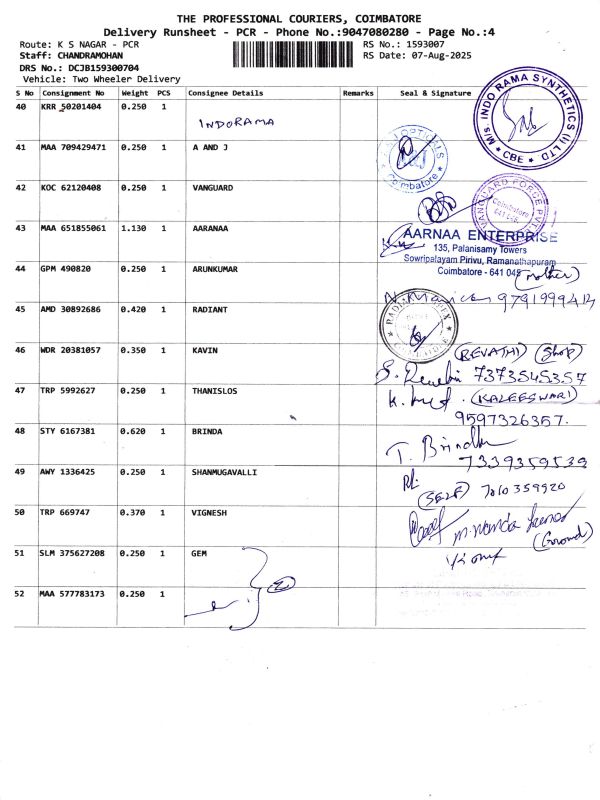 THE PROFESSIONAL COURIERS, COIMBATORE
Delivery Runsheet - PCR - Phone No.:9047080280 - Page No.:4
Route: K S NAGAR - PCR
RS No.: 1593007
Staff: CHANDRAMOHAN
RS Date: 07-Aug-2025
DRS No.: DCJB159300704
Vehicle: Two Wheeler Delivery
S No Consignment No Weight PCS Consignee Details Remarks Seal & Signature
40 KRR 50201404 0.250 1
INDORAMA
M/s. INDO RAMA SYNTHETICS (I) LTD
* CBE *
41 MAA 709429471 0.250 1 A AND J
OPTICALS
A&J
Coimbatore
42 KOC 62120408 0.250 1 VANGUARD
VANGUARD FORCE PVT
Coimbatore
43 MAA 651855061 1.130 1 AARANAA
AARNAA ENTERPRISE
135, Palanisamy Towers
Sowripalayam Pirivu, Ramanathapuram
Coimbatore - 641 045
44 GPM 490820 0.250 1 ARUNKUMAR
(mother)
45 AMD 30892686 0.420 1 RADIANT
COIMBATORE
46 WDR 20381057 0.350 1 KAVIN
(REVATHI) (Shop)
7373545357
47 TRP 5992627 0.250 1 THANISLOS
(KALEESWARI)
9597326357.
48 STY 6167381 0.620 1 BRINDA
T. Brindha
7339359539
49 AWY 1336425 0.250 1 SHANMUGAVALLI
(SELF) 7010359920
50 TRP 669747 0.370 1 VIGNESH
(Ground)
51 SLM 375627208 0.250 1 GEM
2
52 MAA 577783173 0.250 1